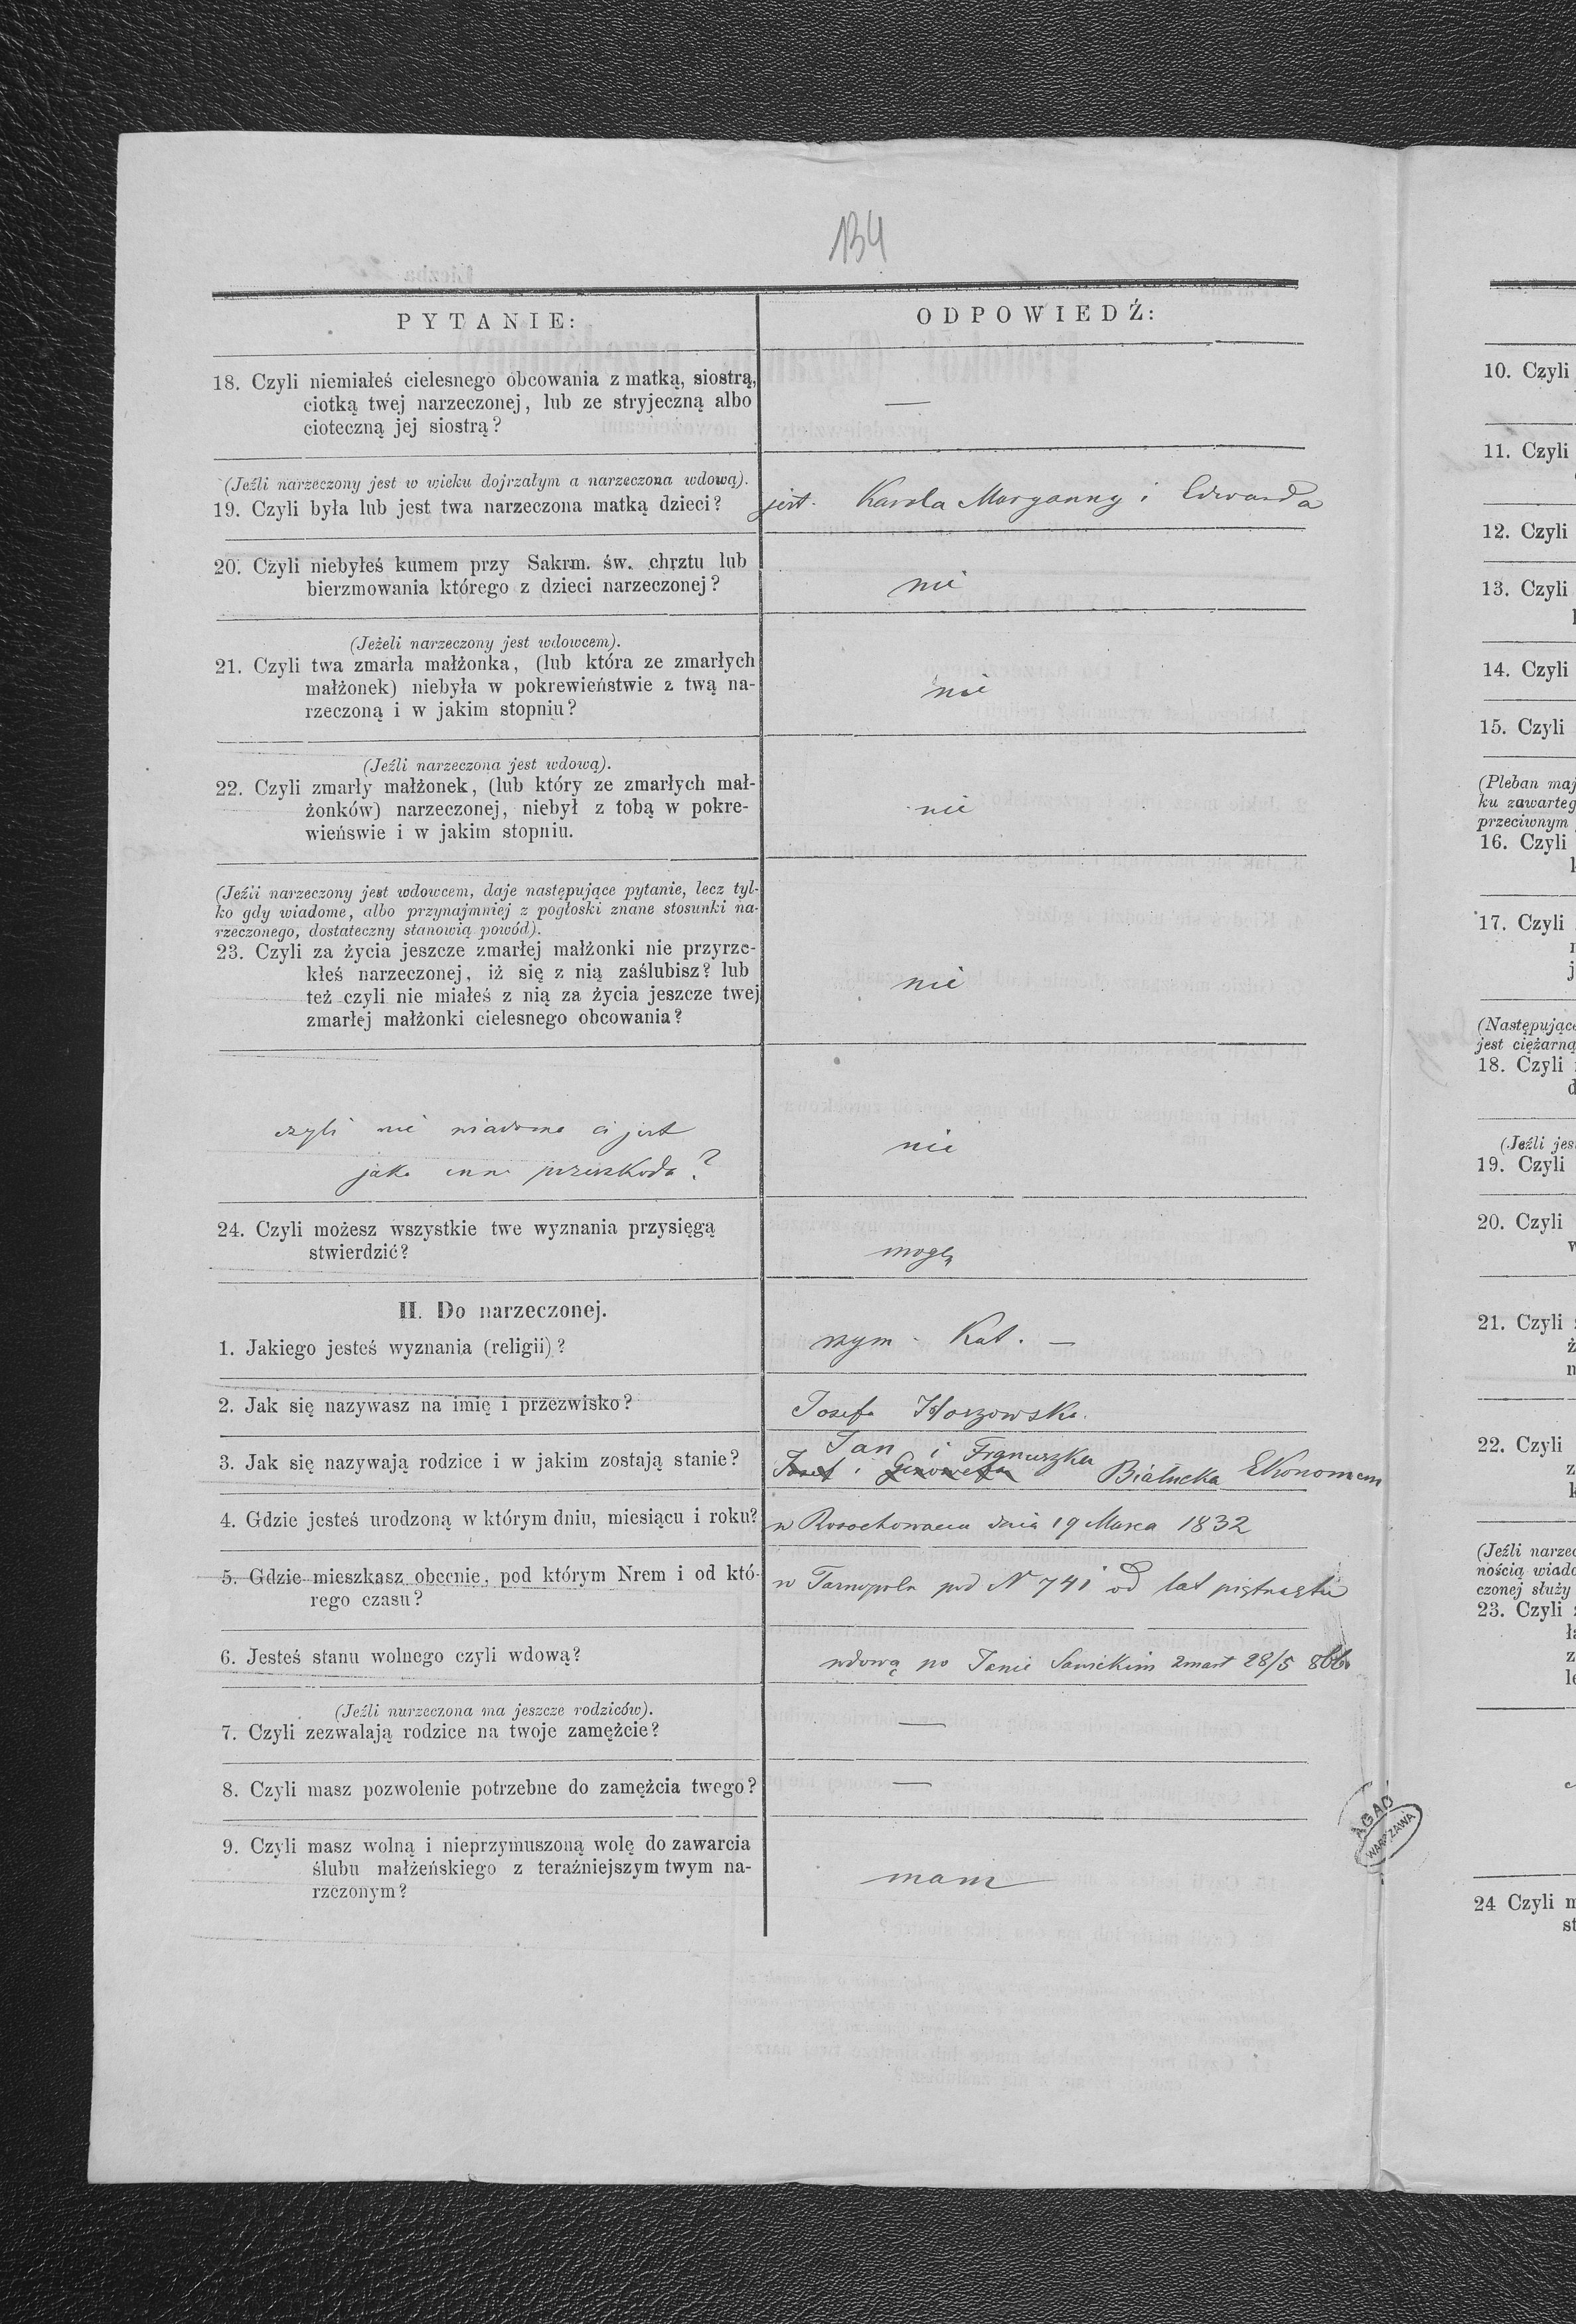 134
PYTANIE:
ODPOWIEDŹ:
18. Czyli niemiałeś cielesnego obcowania z matką, siostrą,
ciotką twej narzeczonej, lub ze stryjeczną albo
cioteczną jej siostrą?
—
(Jeźli narzeczony jest w wieku dojrzałym a narzeczona wdową).
19. Czyli była lub jest twa narzeczona matką dzieci?
jest. Karola Maryanny i Edwarda
20. Czyli niebyłeś kumem przy Sakrm. św. chrztu lub
bierzmowania którego z dzieci narzeczonej?
nie
(Jeżeli narzeczony jest wdowcem).
21. Czyli twa zmarła małżonka, (lub która ze zmarłych
małżonek) niebyła w pokrewieństwie z twą na-
rzeczoną i w jakim stopniu?
nie
(Jeźli narzeczona jest wdową).
22. Czyli zmarły małżonek, (lub który ze zmarłych mał-
żonków) narzeczonej, niebył z tobą w pokre-
wieńswie i w jakim stopniu.
nie
(Jeźli narzeczony jest wdowcem, daje następujące pytanie, lecz tyl-
ko gdy wiadome, albo przynajmniej z pogłoski znane stosunki na-
rzeczonego, dostateczny stanowią powód).
23. Czyli za życia jeszcze zmarłej małżonki nie przyrze-
kłeś narzeczonej, iż się z nią zaślubisz? lub
też czyli nie miałeś z nią za życia jeszcze twej
zmarłej małżonki cielesnego obcowania?
nie
czyli nie wiadoma ci jest
jaka inna przeszkoda?
nie
24. Czyli możesz wszystkie twe wyznania przysięgą
stwierdzić?
mogę
II. Do narzeczonej.
1. Jakiego jesteś wyznania (religii)?
rzym. Kat. —
2. Jak się nazywasz na imię i przezwisko?
Josefa
3. Jak się nazywają rodzice i w jakim zostają stanie?
Jan i Franciszka
Josef i Genowefa Białucka Ekonomem
4. Gdzie jesteś urodzoną w którym dniu, miesiącu i roku?
w dnia 19 Marca 1832
5. Gdzie mieszkasz obecnie, pod którym Nrem i od któ-
rego czasu?
w Tarnopolu pod N 741 od lat piętnastu
6. Jesteś stanu wolnego czyli wdową?
wdową po Janie Sawickim zmarł 28/5 866
(Jeźli nurzeczona ma jeszcze rodziców).
7. Czyli zezwalają rodzice na twoje zamężcie?
—
8. Czyli masz pozwolenie potrzebne do zamężcia twego?
—
9. Czyli masz wolną i nieprzymuszoną wolę do zawarcia
ślubu małżeńskiego z teraźniejszym twym na-
rzczonym?
mam
AGAD
WARSZAWA
10. Czyli
11. Czyli
12. Czyli
13. Czyli
14. Czyli
15. Czyli
(Pleban maj
ku zawarteg
przeciwnym
16. Czyli
17. Czyli
(Następujące
jest ciężarną
18. Czyli
(Jeźli jes
19. Czyli
20. Czyli
21. Czyli
22. Czyli
(Jeźli narzec
nością wiado
czonej służy
23. Czyli
24 Czyli m
st